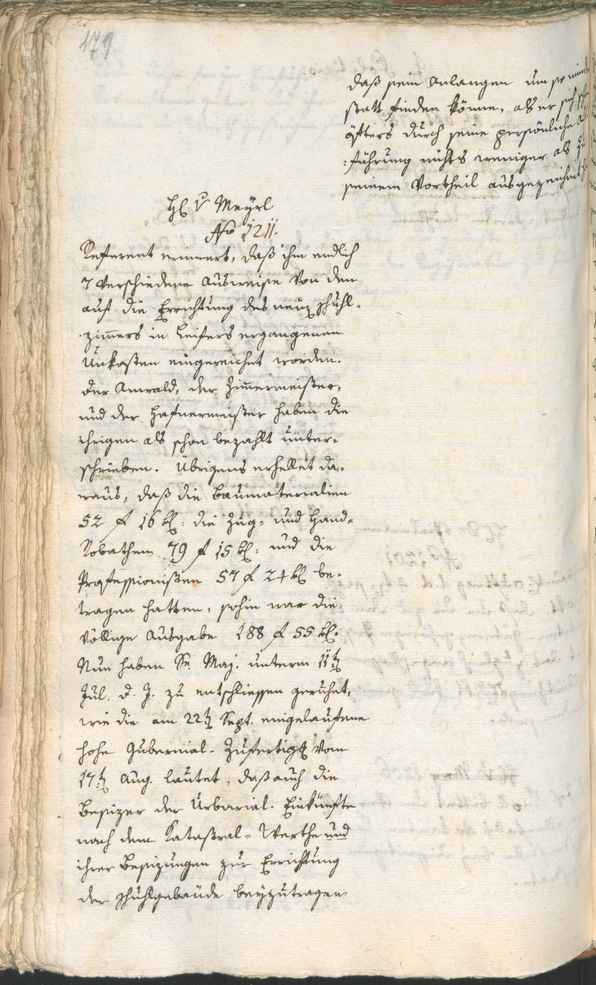 479
daß sein Anlangen um so
statt finden könne, als er sich
öfters durch seine persönliche
führung nichts weniger als zu
seinem Vortheil ausgezeichnet
H. v. Meyrl
No 1211.
Referent erinnert, daß ihm endlich
7 verschiedene Ausweise von den
auf die Errichtung des neuen Schuhl-
zimmers in Leifers ergangenen
Unkosten eingereichet worden.
Der Anwald, der Zimmermeister,
und der Hafnermeister haben die
ihrigen als schon bezahlt unter-
schrieben. Übrigens erhellet da-
raus, daß die Baumaterialien
52 f 16 k: die Zug- und Hand-
Robathen 79 f 15 k: und die
Professionisten 57 f 24 k be-
tragen hatten, sohin war die
völlige Ausgabe 188 f 55 k.
Nun haben Se. Maj. unterm 11t
Jul. d. J. zu entschliessen geruhet,
wie die am 22t Sept. eingelaufene
hohe Gubernial-Zufertigg vom
17t Aug. lautet, daß auch die
Besizer der Urbarial-Einkünfte
nach dem Katastral-Werthe und
ihrer Besizungen zur Errichtung
der Schuhlgebäude beyzutragen